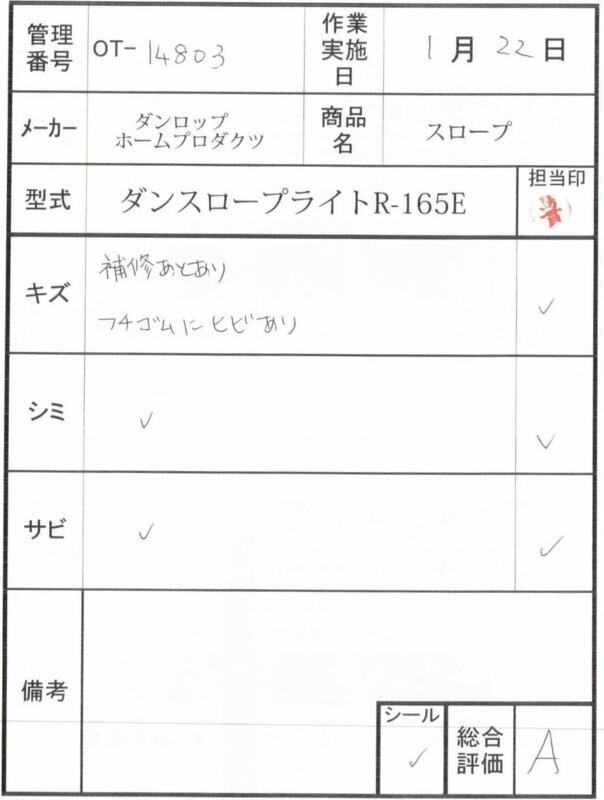 管理番号
OT- 14803
作業実施日
1月22日
メーカー
ダンロップ
ホームプロダクツ
商品名
スロープ
型式
ダンスロープライトR-165E
担当印
キズ
補修あとあり
フチゴムにヒビあり
✓
シミ
✓
✓
サビ
✓
✓
備考
シール
✓
総合評価
A